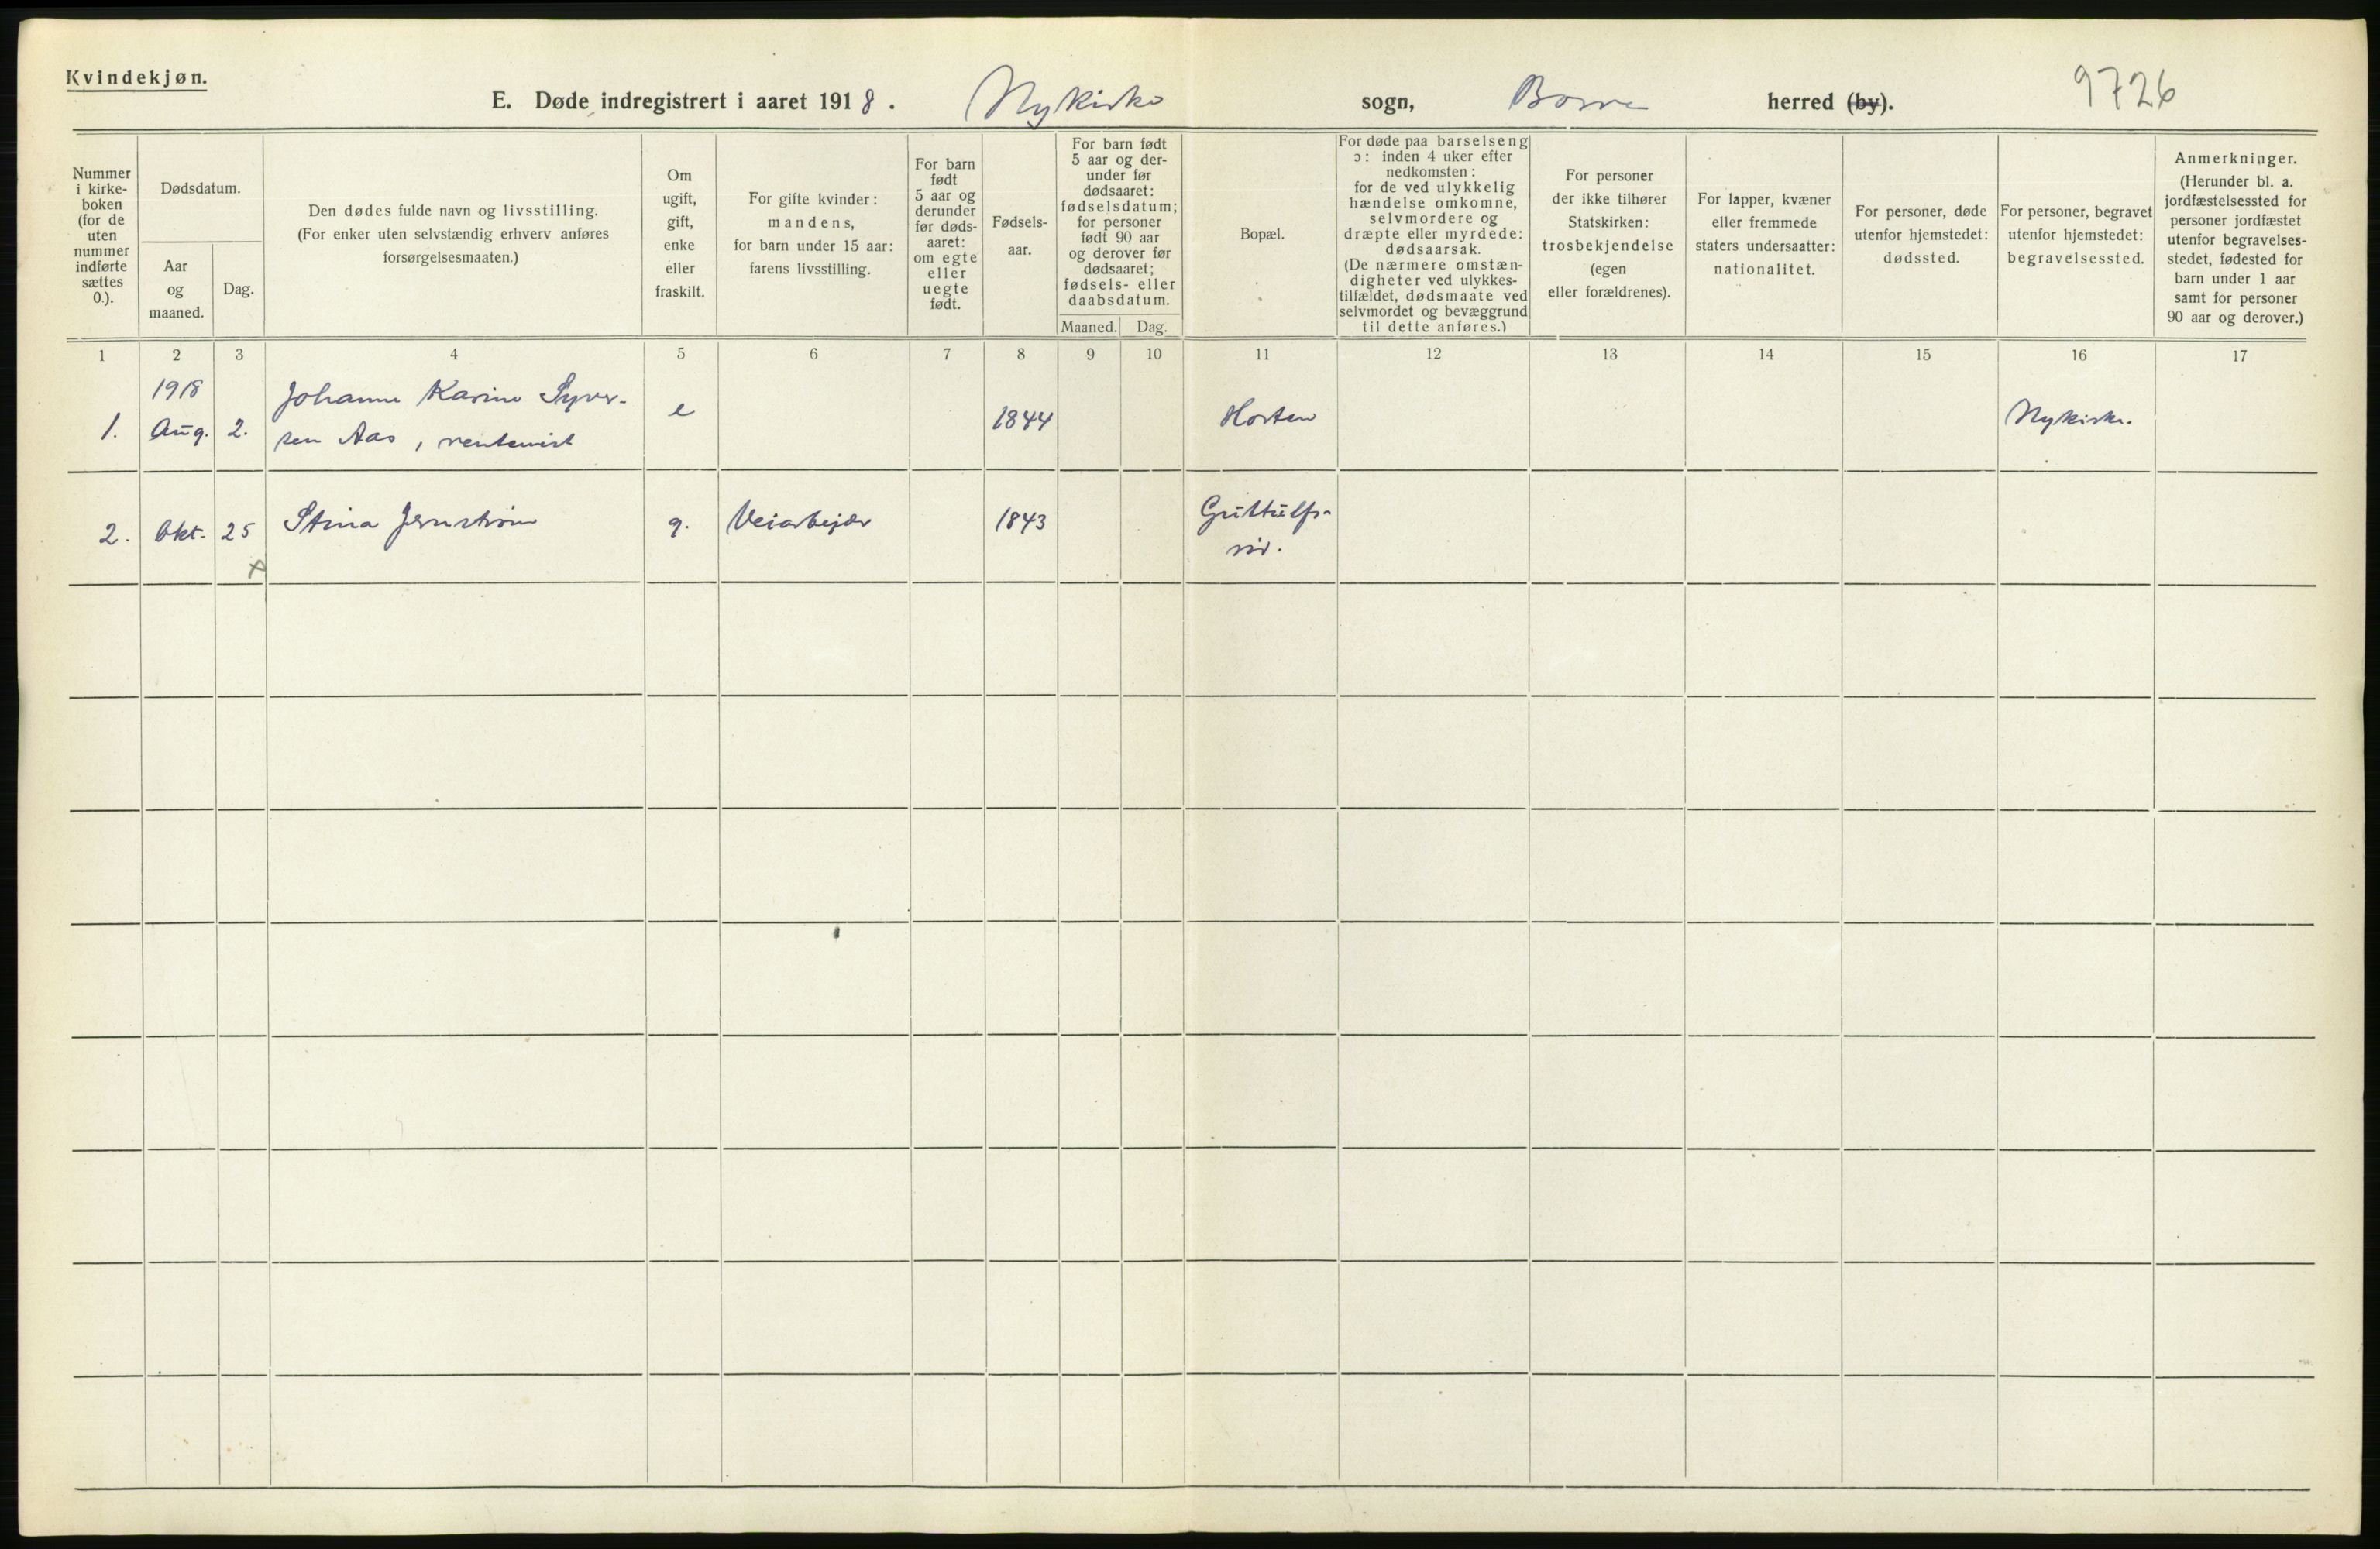 Kvindekjøn.
E. Døde indregistrert i aaret 1918. Nykirke sogn, Borre herred (by). 9726
Nummer
i kirke-
boken
(for de
uten
nummer
indførte
sættes
0.).
Dødsdatum.
Aar
og
maaned.
Dag.
Den dødes fulde navn og livsstilling.
(For enker uten selvstændig erhverv anføres
forsørgelsesmaaten.)
Om
ugift,
gift,
enke
eller
fraskilt.
For gifte kvinder:
mandens,
for barn under 15 aar:
farens livsstilling.
For barn
født
5 aar og
derunder
før døds-
aaret:
om egte
eller
uegte
født.
Fødsels-
aar.
For barn født
5 aar og der-
under før
dødsaaret:
fødselsdatum;
for personer
født 90 aar
og derover før
dødsaaret;
fødsels- eller
daabsdatum.
Maaned. Dag.
Bopæl.
For døde paa barselseng
ɔ: inden 4 uker efter
nedkomsten:
for de ved ulykkelig
hændelse omkomne,
selvmordere og
dræpte eller myrdede:
dødsaarsak.
(De nærmere omstæn-
digheter ved ulykkes-
tilfældet, dødsmaate ved
selvmordet og bevæggrund
til dette anføres.)
For personer
der ikke tilhører
Statskirken:
trosbekjendelse
(egen
eller forældrenes).
For lapper, kvæner
eller fremmede
staters undersaatter:
nationalitet.
For personer, døde
utenfor hjemstedet:
dødssted.
For personer, begravet
utenfor hjemstedet:
begravelsessted.
Anmerkninger.
(Herunder bl. a.
jordfæstelsessted for
personer jordfæstet
utenfor begravelses-
stedet, fødested for
barn under 1 aar
samt for personer
90 aar og derover.)
1 2 3 4 5 6 7 8 9 10 11 12 13 14 15 16 17
1918 Johanne Karine Syver-
1. Aug. 2. sen Aas, rentenist e 1844 Horten Nykirke.
2. Okt. 25 Stina Jernstrøm g. Veiarbejder 1843 Guttulfs-
rød.
x